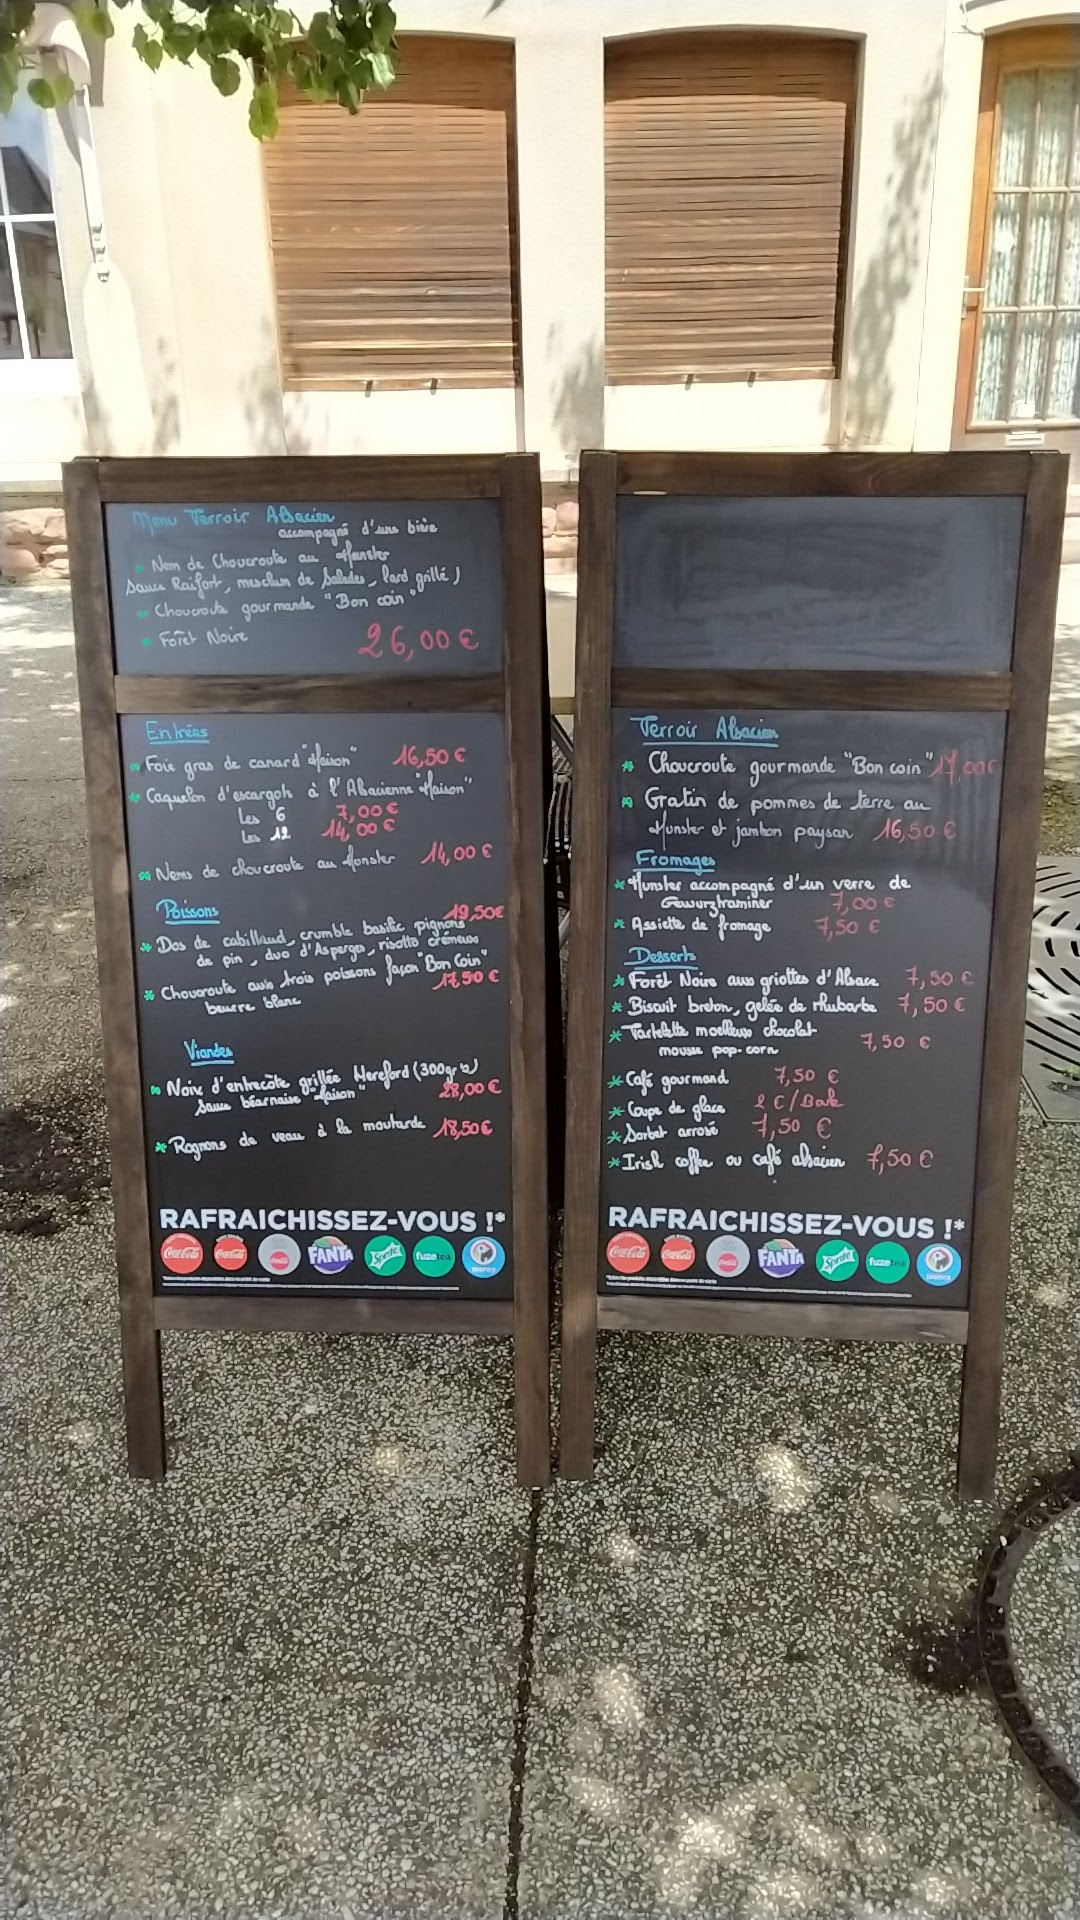 Menu Terroir Alsacien
accompagné d'une bière
* Nem de Choucroute au Munster
Sauce Raifort, mesclum de Salades, lard grillé )
* Choucroute gourmande "Bon coin"
* Forêt Noire 26,00 €
Entrées
* Foie gras de canard "Maison" 16,50 €
* Caquelon d'escargots à l'Alsacienne "Maison"
Les 6 7,00 €
Les 12 14,00 €
* Nems de choucroute au Monster 14,00 €
Poissons 19,50€
* Dos de cabillaud, crumble basilic pignons
de pin, duo d'Asperges, risotto crémeux
* Choucroute aux trois poissons façon "Bon Coin"
beurre blanc 17,50 €
Viandes
* Noix d'entrecôte grillée Hereford (300gr)
Sauce béarnaise "Maison" 28,00 €
* Rognons de veau à la moutarde 18,50€
RAFRAICHISSEZ-VOUS !*
Coca-Cola Coca-Cola Coca-Cola FANTA Sprite fuzetea
Terroir Alsacien
* Choucroute gourmande "Bon coin" 17,00€
* Gratin de pommes de terre au
Munster et jambon paysan 16,50 €
Fromages
* Munster accompagné d'un verre de
Gewurztraminer 7,00 €
* Assiette de fromage 7,50 €
Desserts
* Forêt Noire aux griottes d'Alsace 7,50 €
* Biscuit breton, gelée de rhubarbe 7,50 €
* Tartelette moelleux chocolat
mousse pop-corn 7,50 €
* Café gourmand 7,50 €
* Coupe de glace 2 €/Boule
* Sorbet arrosé 7,50 €
* Irish coffee ou café alsacien 7,50 €
RAFRAICHISSEZ-VOUS !*
Coca-Cola Coca-Cola Coca-Cola FANTA Sprite fuzetea